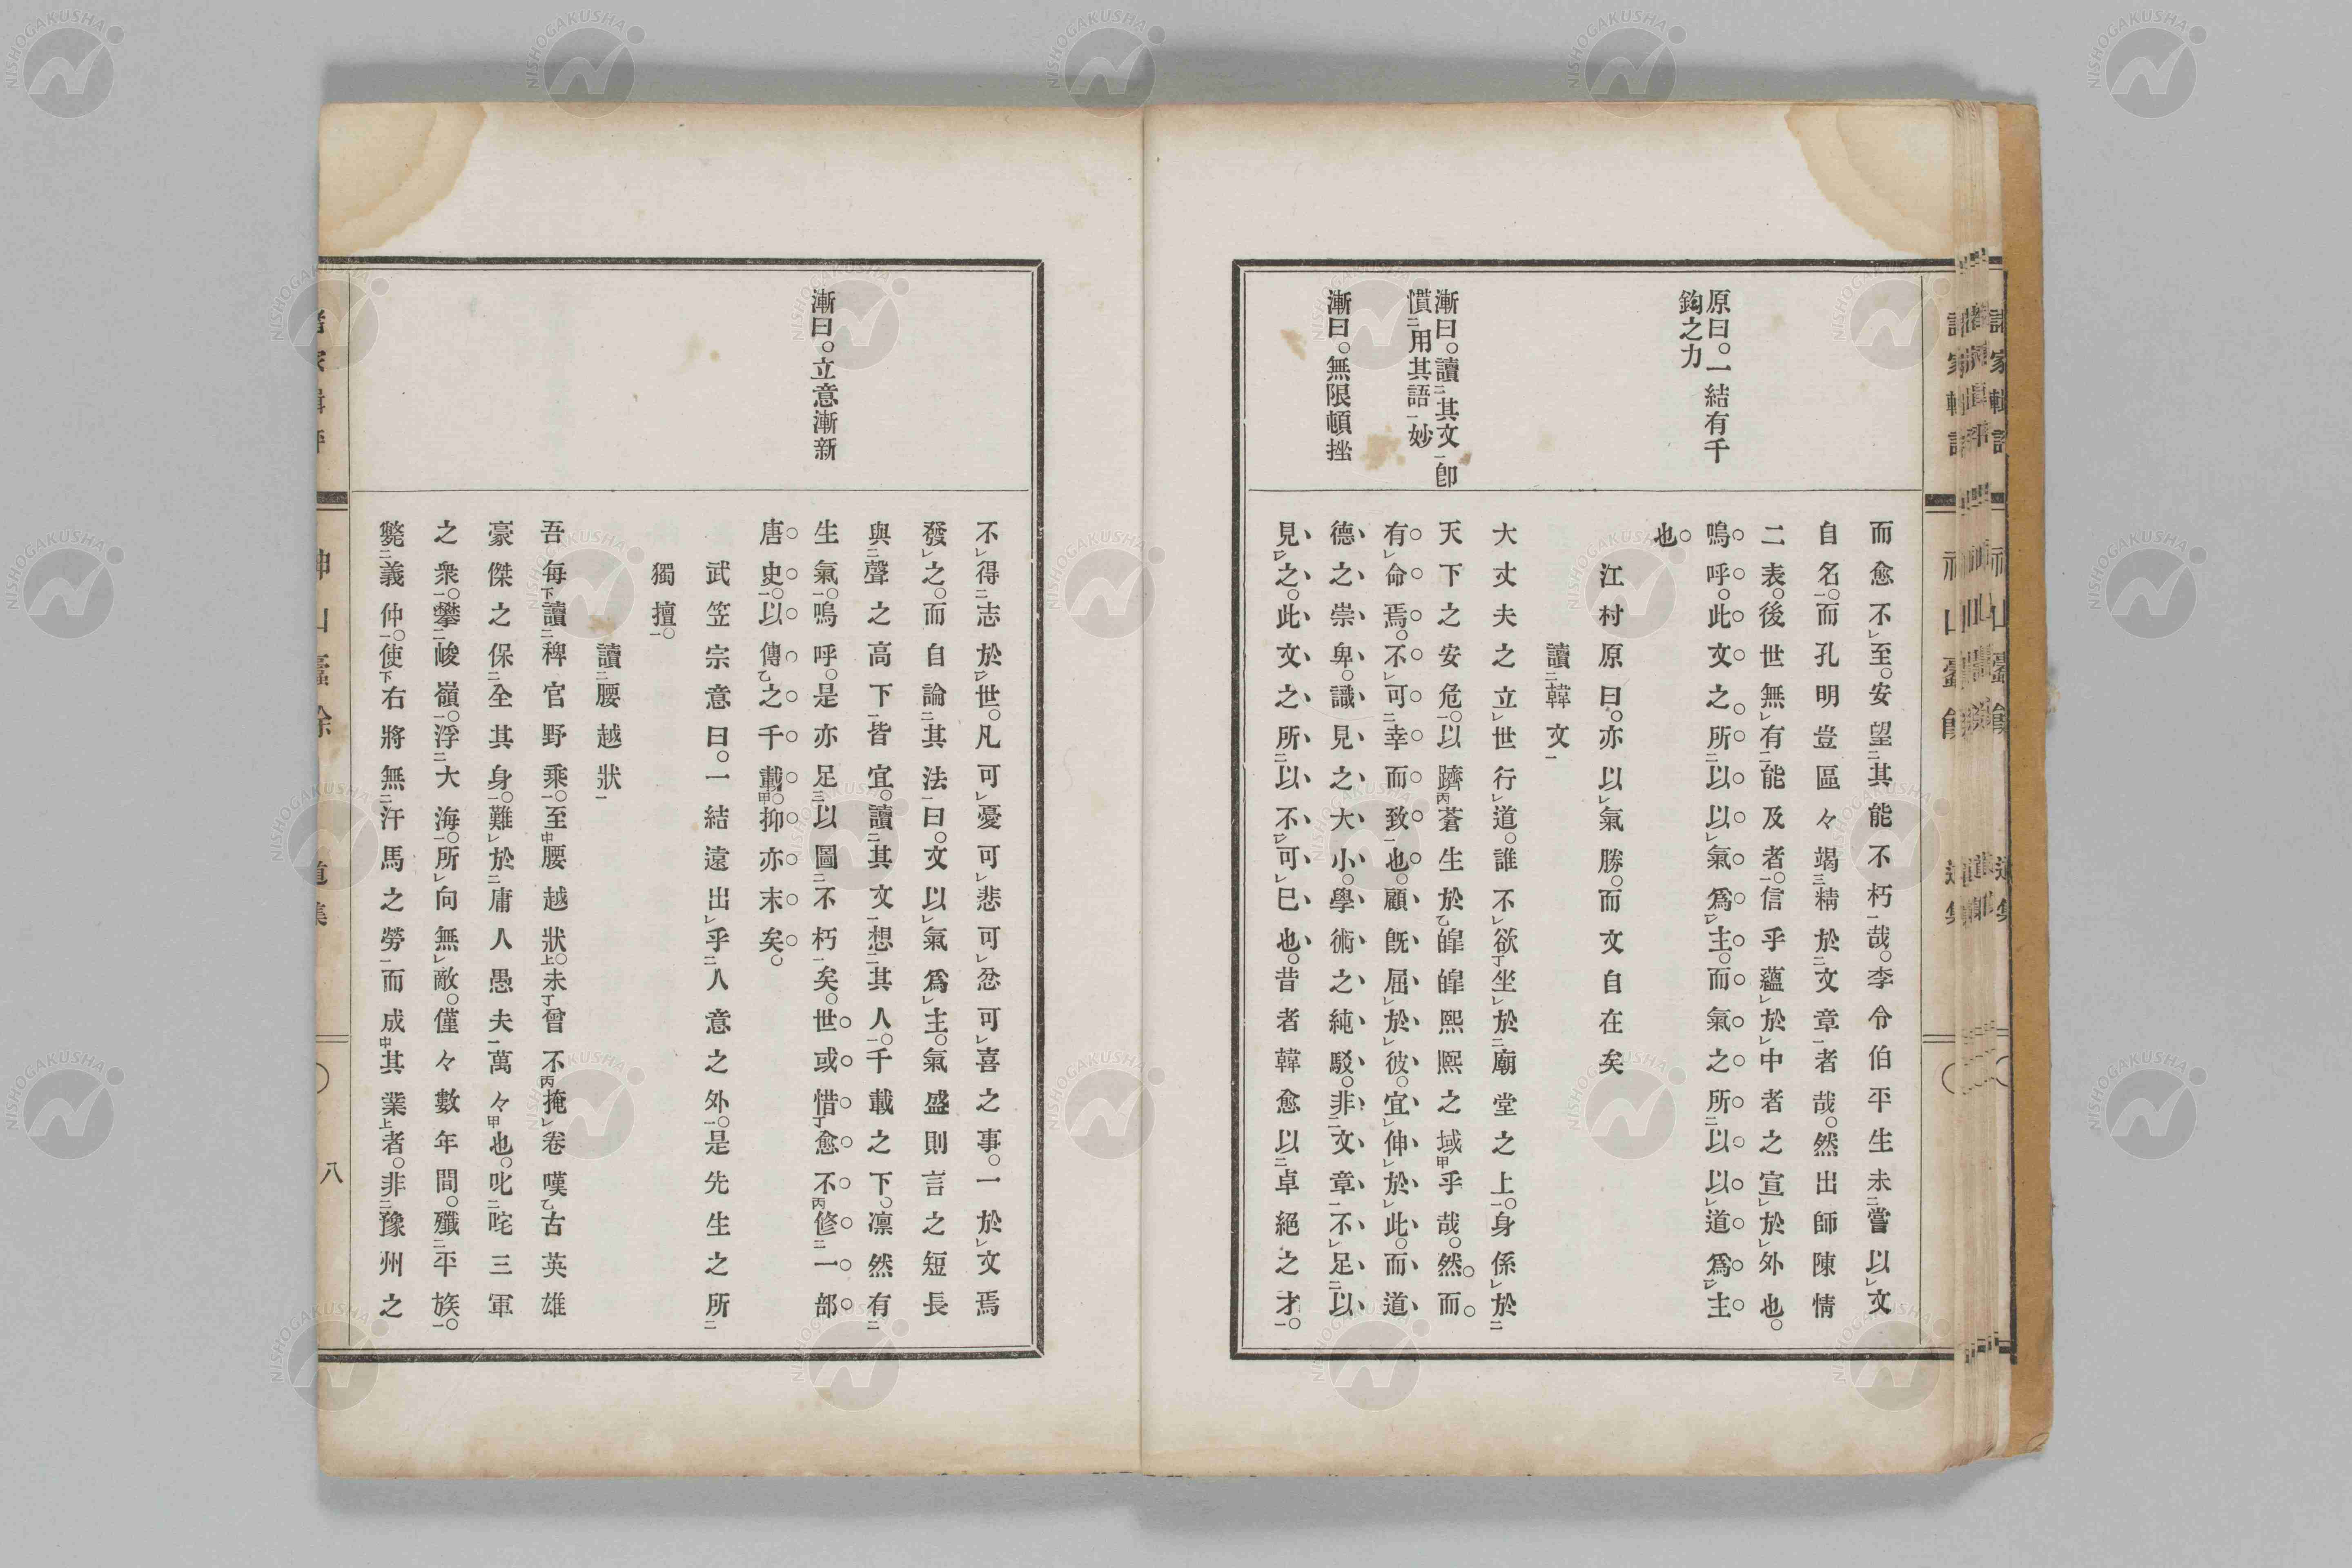 原曰。一結有千
鈞之力
漸曰。讀其文卽
慣用其語妙
漸曰。無限頓挫
而愈不至。安望其能不朽哉。李令伯平生未嘗以文
自名。而孔明豈區々竭精於文章者哉。然出師陳情
二表。後世無有能及者。信乎蘊於中者之宣於外也。
嗚呼。此文之所以以氣爲主。而氣之所以以道爲主
也
江村原曰。亦以氣勝。而文自在矣
讀韓文
大丈夫之立世行道。誰不欲坐於廟堂之上。身係於
天下之安危。以躋蒼生於皥皥熙熙之域乎哉。然而
有命焉。不可幸而致也。顧旣屈於彼。宜伸於此。而道
德之崇卑。識見之大小。學術之純駁。非文章不足以
見之。此文之所以不可已也。昔者韓愈以卓絕之才。
漸曰。立意漸新
不得志於世。凡可憂可悲可忿可喜之事。一於文焉
發之。而自論其法曰。文以氣爲主。氣盛則言之短長
與聲之高下皆宜。讀其文想其人。千載之下。凛然有
生氣。嗚呼。是亦足以圖不朽矣。世或惜愈不修一部
唐史。以傳之千載。抑亦末矣。
武笠宗意曰。一結遠出乎人意之外。是先生之所
獨擅。
讀腰越狀
吾每讀稗官野乘。至腰越狀。未曾不掩卷嘆古英雄
豪傑之保全其身。難於庸人愚夫萬々也。叱咤三軍
之衆。攀峻嶺。浮大海。所向無敵。僅々數年間。殲平族。
斃義仲。使右將無汗馬之勞而成其業者。非豫州之
八
NISHOGAKUSHA